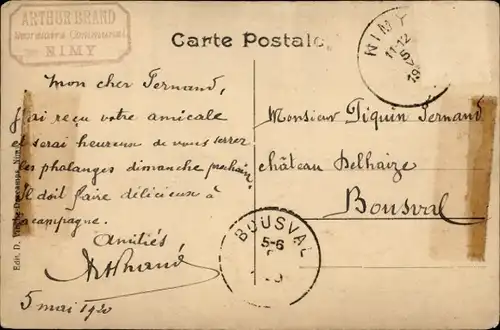 ARTHUR BRAND
Communal
NIMY
Carte Postale
NIMY
11-12
Mon cher Fernand,
J'ai reçu votre amicale
et serai heureux de vous serrer
les phalanges dimanche prochain.
Il doit faire délicieux à
la campagne.
Amitiés
5 mai 1920
Monsieur Piquin Fernand
château Delhaize
Bousval
BOUSVAL
5-6
Edit. D.